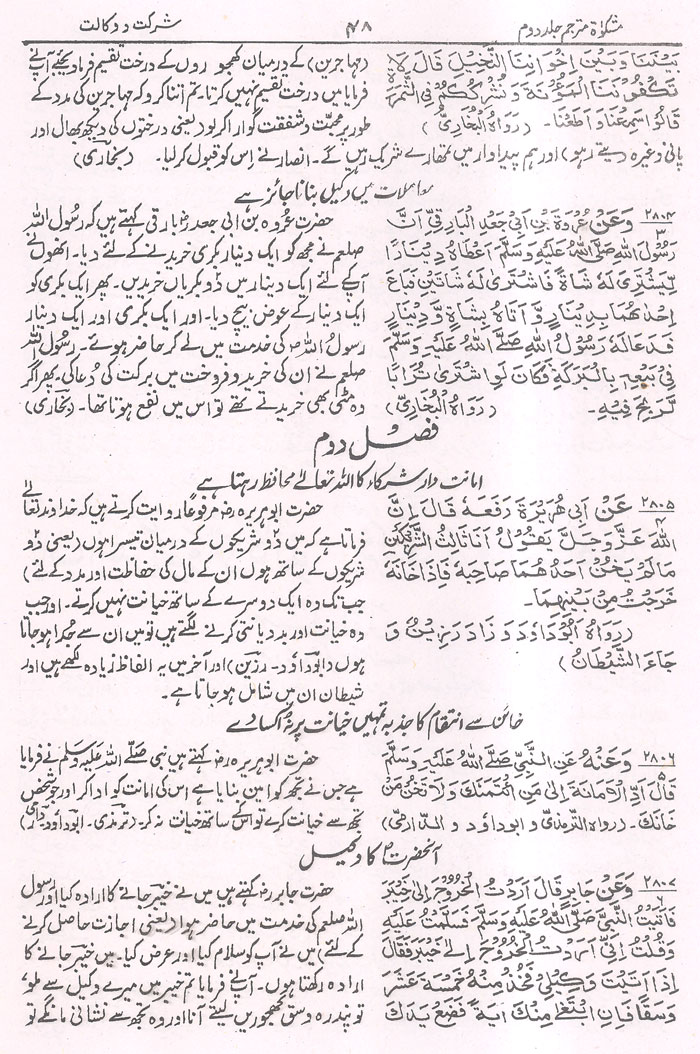 مشکوٰۃ مترجم جلد دوم
۴۸
شرکت و وکالت
بَيْنَنَا وَبَيْنَ اِخْوَانِنَا النَّخِيْلَ قَالَ لَا
تَكْفُوْنَنَا الْمَؤُنَةَ وَنُشْرِكُكُمْ فِي الثَّمَرَةِ
قَالُوْا سَمِعْنَا وَاَطَعْنَا۔ (رَوَاهُ الْبُخَارِيُّ)
(مہاجرین) کے درمیان کھجوروں کے درخت تقسیم فرما دیجئے آپ نے
فرمایا میں درخت تقسیم نہیں کرتا۔ تم اتنا کرو کہ مہاجرین کی مدد کے
طور پر محنت و شفقت گوارا کر لو (یعنی درختوں کی دیکھ بھال اور
پانی وغیرہ دیتے رہو) اور ہم پیداوار میں تمھارے شریک رہیں گے۔ انصار نے اس کو قبول کر لیا۔ (بخاری)
معاملات میں وکیل بنانا جائز ہے
۲۸۰۴
۳
وَعَنْ عُرْوَةَ بْنِ اَبِي جَعْدِ الْبَارِقِيِّ اَنَّ
رَسُوْلَ اللّٰهِ صَلَّى اللّٰهُ عَلَيْهِ وَسَلَّمَ اَعْطَاهُ دِيْنَارًا
لِّيَشْتَرِيَ لَهٗ شَاةً فَاشْتَرٰى لَهٗ شَاتَيْنِ فَبَاعَ
اِحْدٰهُمَا بِدِيْنَارٍ وَّ اَتَاهُ بِشَاةٍ وَّ دِيْنَارٍ
فَدَعَا لَهٗ رَسُوْلُ اللّٰهِ صَلَّى اللّٰهُ عَلَيْهِ وَسَلَّمَ
فِيْ بَيْعِهٖ بِالْبَرَكَةِ فَكَانَ لَوِ اشْتَرٰى تُرَابًا
لَّرَبِحَ فِيْهِ۔ (رَوَاهُ الْبُخَارِيُّ)
حضرت عُروہ بن ابی جعد رضہ بارقی کہتے ہیں کہ رسُول اللہ
صلعم نے مجھ کو ایک دینار بکری خریدنے کے لئے دیا۔ انھوں نے
آپ کے لئے ایک دینار میں دو بکریاں خریدیں۔ پھر ایک بکری کو
ایک دینار کے عوض بیچ دیا۔ اور ایک بکری اور ایک دینار
رسولُ اللہ ص کی خدمت میں لے کر حاضر ہوئے۔ رسول اللہ
صلعم نے ان کی خرید و فروخت میں برکت کی دُعا کی۔ پھر اگر
وہ مٹی بھی خریدتے تھے تو اس میں نفع ہوتا تھا۔ (بخاری)
فصل دوم
امانت دار شرکاء کا اللہ تعالےٰ محافظ رہتا ہے
۲۸۰۵
۴
عَنْ اَبِيْ هُرَيْرَةَ رَفَعَهٗ قَالَ اِنَّ
اللّٰهَ عَزَّ وَجَلَّ يَقُوْلُ اَنَا ثَالِثُ الشَّرِيْكَيْنِ
مَا لَمْ يَخُنْ اَحَدُهُمَا صَاحِبَهٗ فَاِذَا خَانَهٗ
خَرَجْتُ مِنْ بَيْنِهِمَا۔
(رَوَاهُ اَبُوْدَاوُدَ وَ زَادَ رَزِيْنٌ وَ
جَاءَ الشَّيْطَانُ)
حضرت ابوہریرہ رضہ مرفوعًا روایت کرتے ہیں کہ خداوند تعالےٰ
فرماتا ہے کہ میں دو شریکوں کے درمیان تیسرا ہوں (یعنی دو
شریکوں کے ساتھ ہوں ان کے مال کی حفاظت اور مدد کے لئے)
جب تک وہ ایک دوسرے کے ساتھ خیانت نہیں کرتے۔ اور جب
وہ خیانت اور بددیانتی کرنے لگتے ہیں تو میں ان سے جُدا ہو جاتا
ہوں (ابوداؤد۔ رزین) اور آخر میں یہ الفاظ زیادہ لکھے ہیں اور
شیطان ان میں شامل ہو جاتا ہے۔
خائن سے انتقام کا جذبہ تمہیں خیانت پر نہ اکسا دے
۲۸۰۶
۵
وَعَنْهُ عَنِ النَّبِيِّ صَلَّى اللّٰهُ عَلَيْهِ وَسَلَّمَ
قَالَ اَدِّ الْاَمَانَةَ اِلٰى مَنِ ائْتَمَنَكَ وَلَا تَخُنْ مَنْ
خَانَكَ۔ (رواہ الترمذی و ابوداؤد و الدارمی)
حضرت ابوہریرہ رضہ کہتے ہیں نبی صلّے اللہ علیہ وسلّم نے فرمایا
ہے جس نے تجھ کو امین بنایا ہے اس کی امانت کو ادا کر اور جو شخص
تجھ سے خیانت کرے تو اس کے ساتھ خیانت نہ کر۔ (ترمذی۔ ابوداؤد۔ دارمی)
آنحضرت ؐ کا وکیل
۲۸۰۷
۶
وَعَنْ جَابِرٍ قَالَ اَرَدْتُ الْخُرُوْجَ اِلٰى خَيْبَرَ
فَاَتَيْتُ النَّبِيَّ صَلَّى اللّٰهُ عَلَيْهِ وَسَلَّمَ فَسَلَّمْتُ عَلَيْهِ
وَقُلْتُ اِنِّيْ اَرَدْتُ الْخُرُوْجَ اِلٰى خَيْبَرَ فَقَالَ
اِذَا اَتَيْتَ وَكِيْلِيْ فَخُذْ مِنْهُ خَمْسَةَ عَشَرَ
وَسْقًا فَاِنِ ابْتَغٰى مِنْكَ اٰيَةً فَضَعْ يَدَكَ
حضرت جابر رضہ کہتے ہیں میں نے خیبر جانے کا ارادہ کیا اور رسول
اللہ صلعم کی خدمت میں حاضر ہوا (یعنی اجازت حاصل کرنے
کے لئے) میں نے آپ کو سلام کیا اور عرض کیا۔ میں خیبر جانے کا
ارادہ رکھتا ہوں۔ آپ نے فرمایا تم خیبر میں میرے وکیل سے ملو،
تو پندرہ وسق کھجوریں لیتے آنا اور وہ تجھ سے نشانی مانگے تو